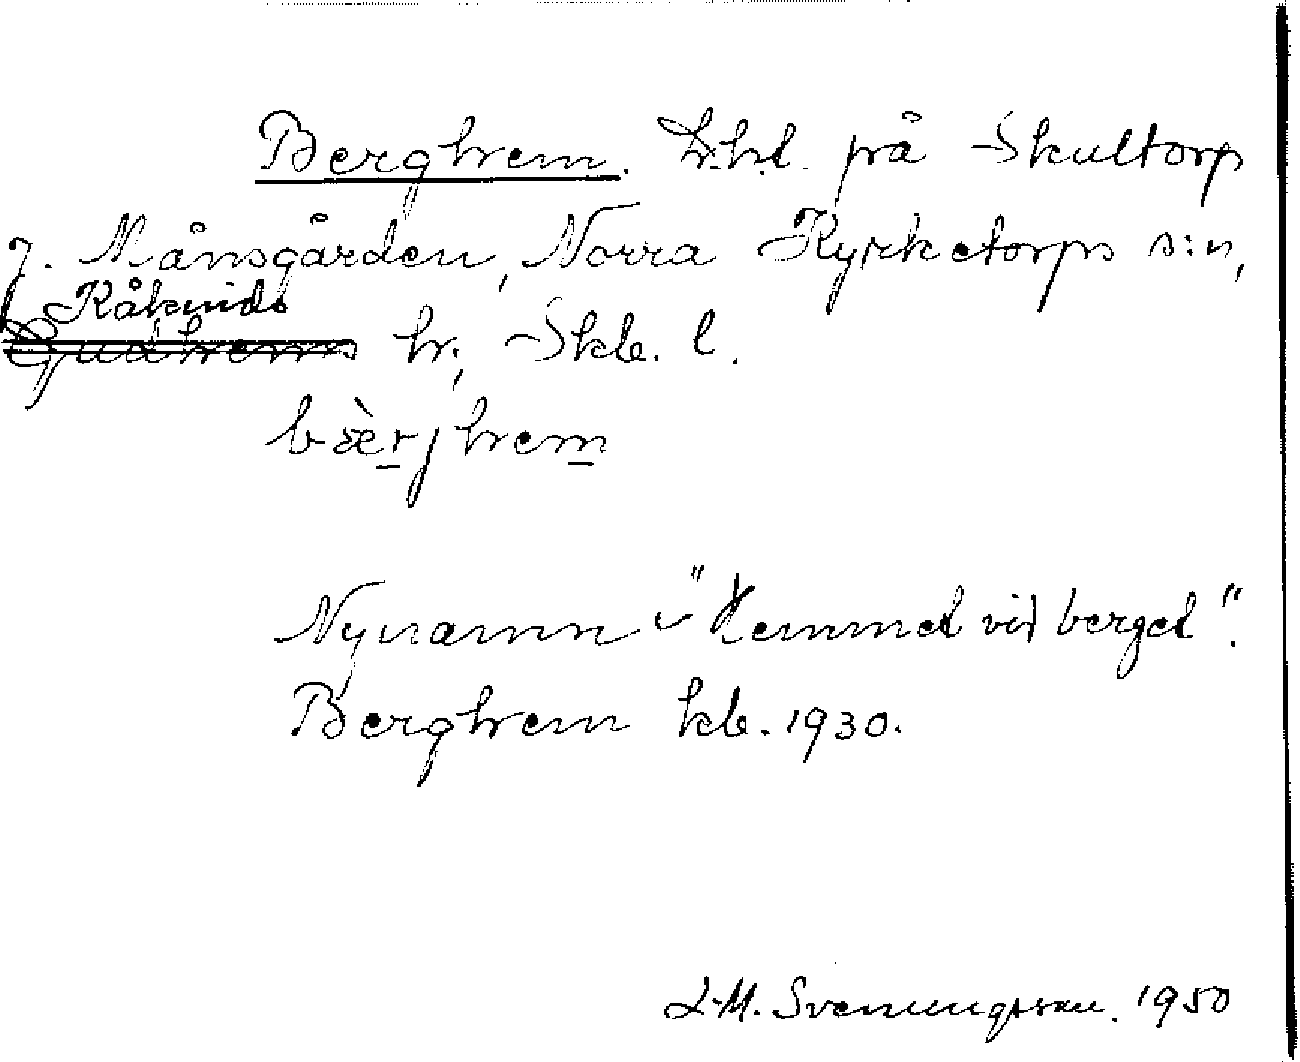 Berghem. Lht. på Skultorp
7. Månsgården, Norra Kyrketorps s:n,
Kåkinds
Gudhems hr, Skb. l.
bæ̀rjhem
Nynamn "Hemmet vid berget".
Berghem kb. 1930.
L-M. Svenungsson. 1950